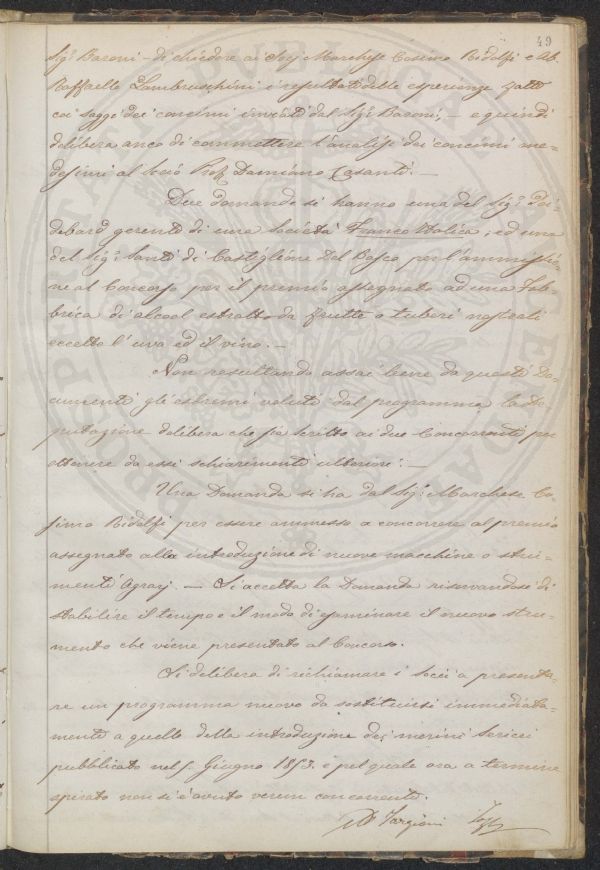 49
Sig.r Baroni - di chiedere ai Sigg. Marchese Cosimo Ridolfi e Ab.
Raffaello Lambruschini i resultati delle esperienze fatte
coi saggi dei concimi inviati dal Sig.r Baroni, - e quindi
delibera anco di commettere l'analisi dei concimi me-
desimi al Socio Prof. Damiano Casanti. -
Due domande si hanno una del Sig.r
debard gerente di una Società Franco Italica, ed una
del Sig.r Santi di Castiglione del Bosco per l'ammissio-
ne al Concorso per il premio assegnato ad una Fab-
brica di alcool estratto da frutte o tuberi nostrali
eccetto l'uva ed il vino. -
Non resultando assai bene da questi do-
cumenti gli estremi voluti dal programma la De-
putazione delibera che sia scritto ai due Concorrenti per
ottenere da essi schiarimenti ulteriori. -
Una Domanda si ha dal Sig.r Marchese Co-
simo Ridolfi per essere ammesso a concorrere al premio
assegnato alla introduzione di nuove macchine o stru-
menti Agrarj. - Si accetta la Domanda riservandosi di
stabilire il tempo e il modo di esaminare il nuovo stru-
mento che viene presentato al Concorso.
Si delibera di richiamare i Socii a presenta-
re un programma nuovo da sostituirsi immediata-
mente a quello della introduzione dei merini sericei
pubblicato nel 5. Giugno 1853. e pel quale ora a termine
spirato non si è avuto verun concorrente.
D. Targioni
PROSPERITATI PUBLICAE AUGENDAE